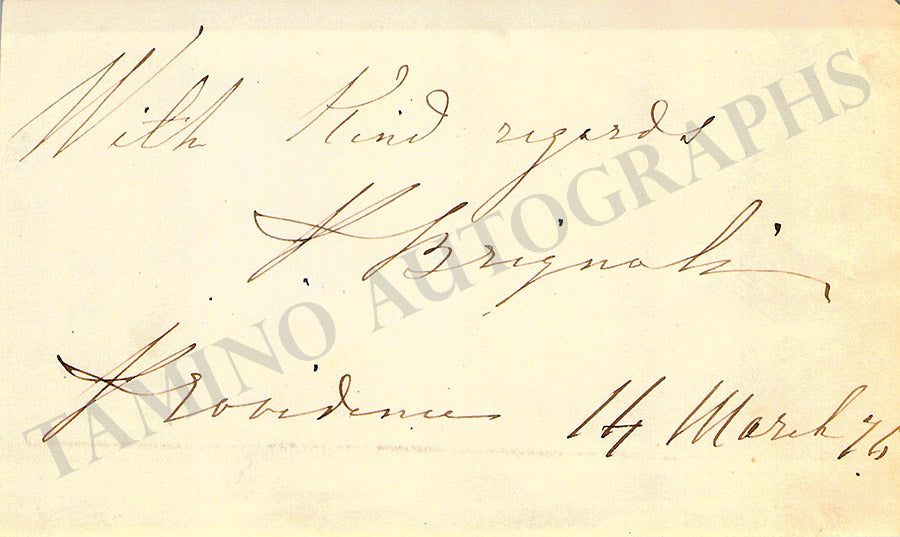 With Kind regards
P. Brignoli
Providence 14 March 76
TAMINO AUTOGRAPHS